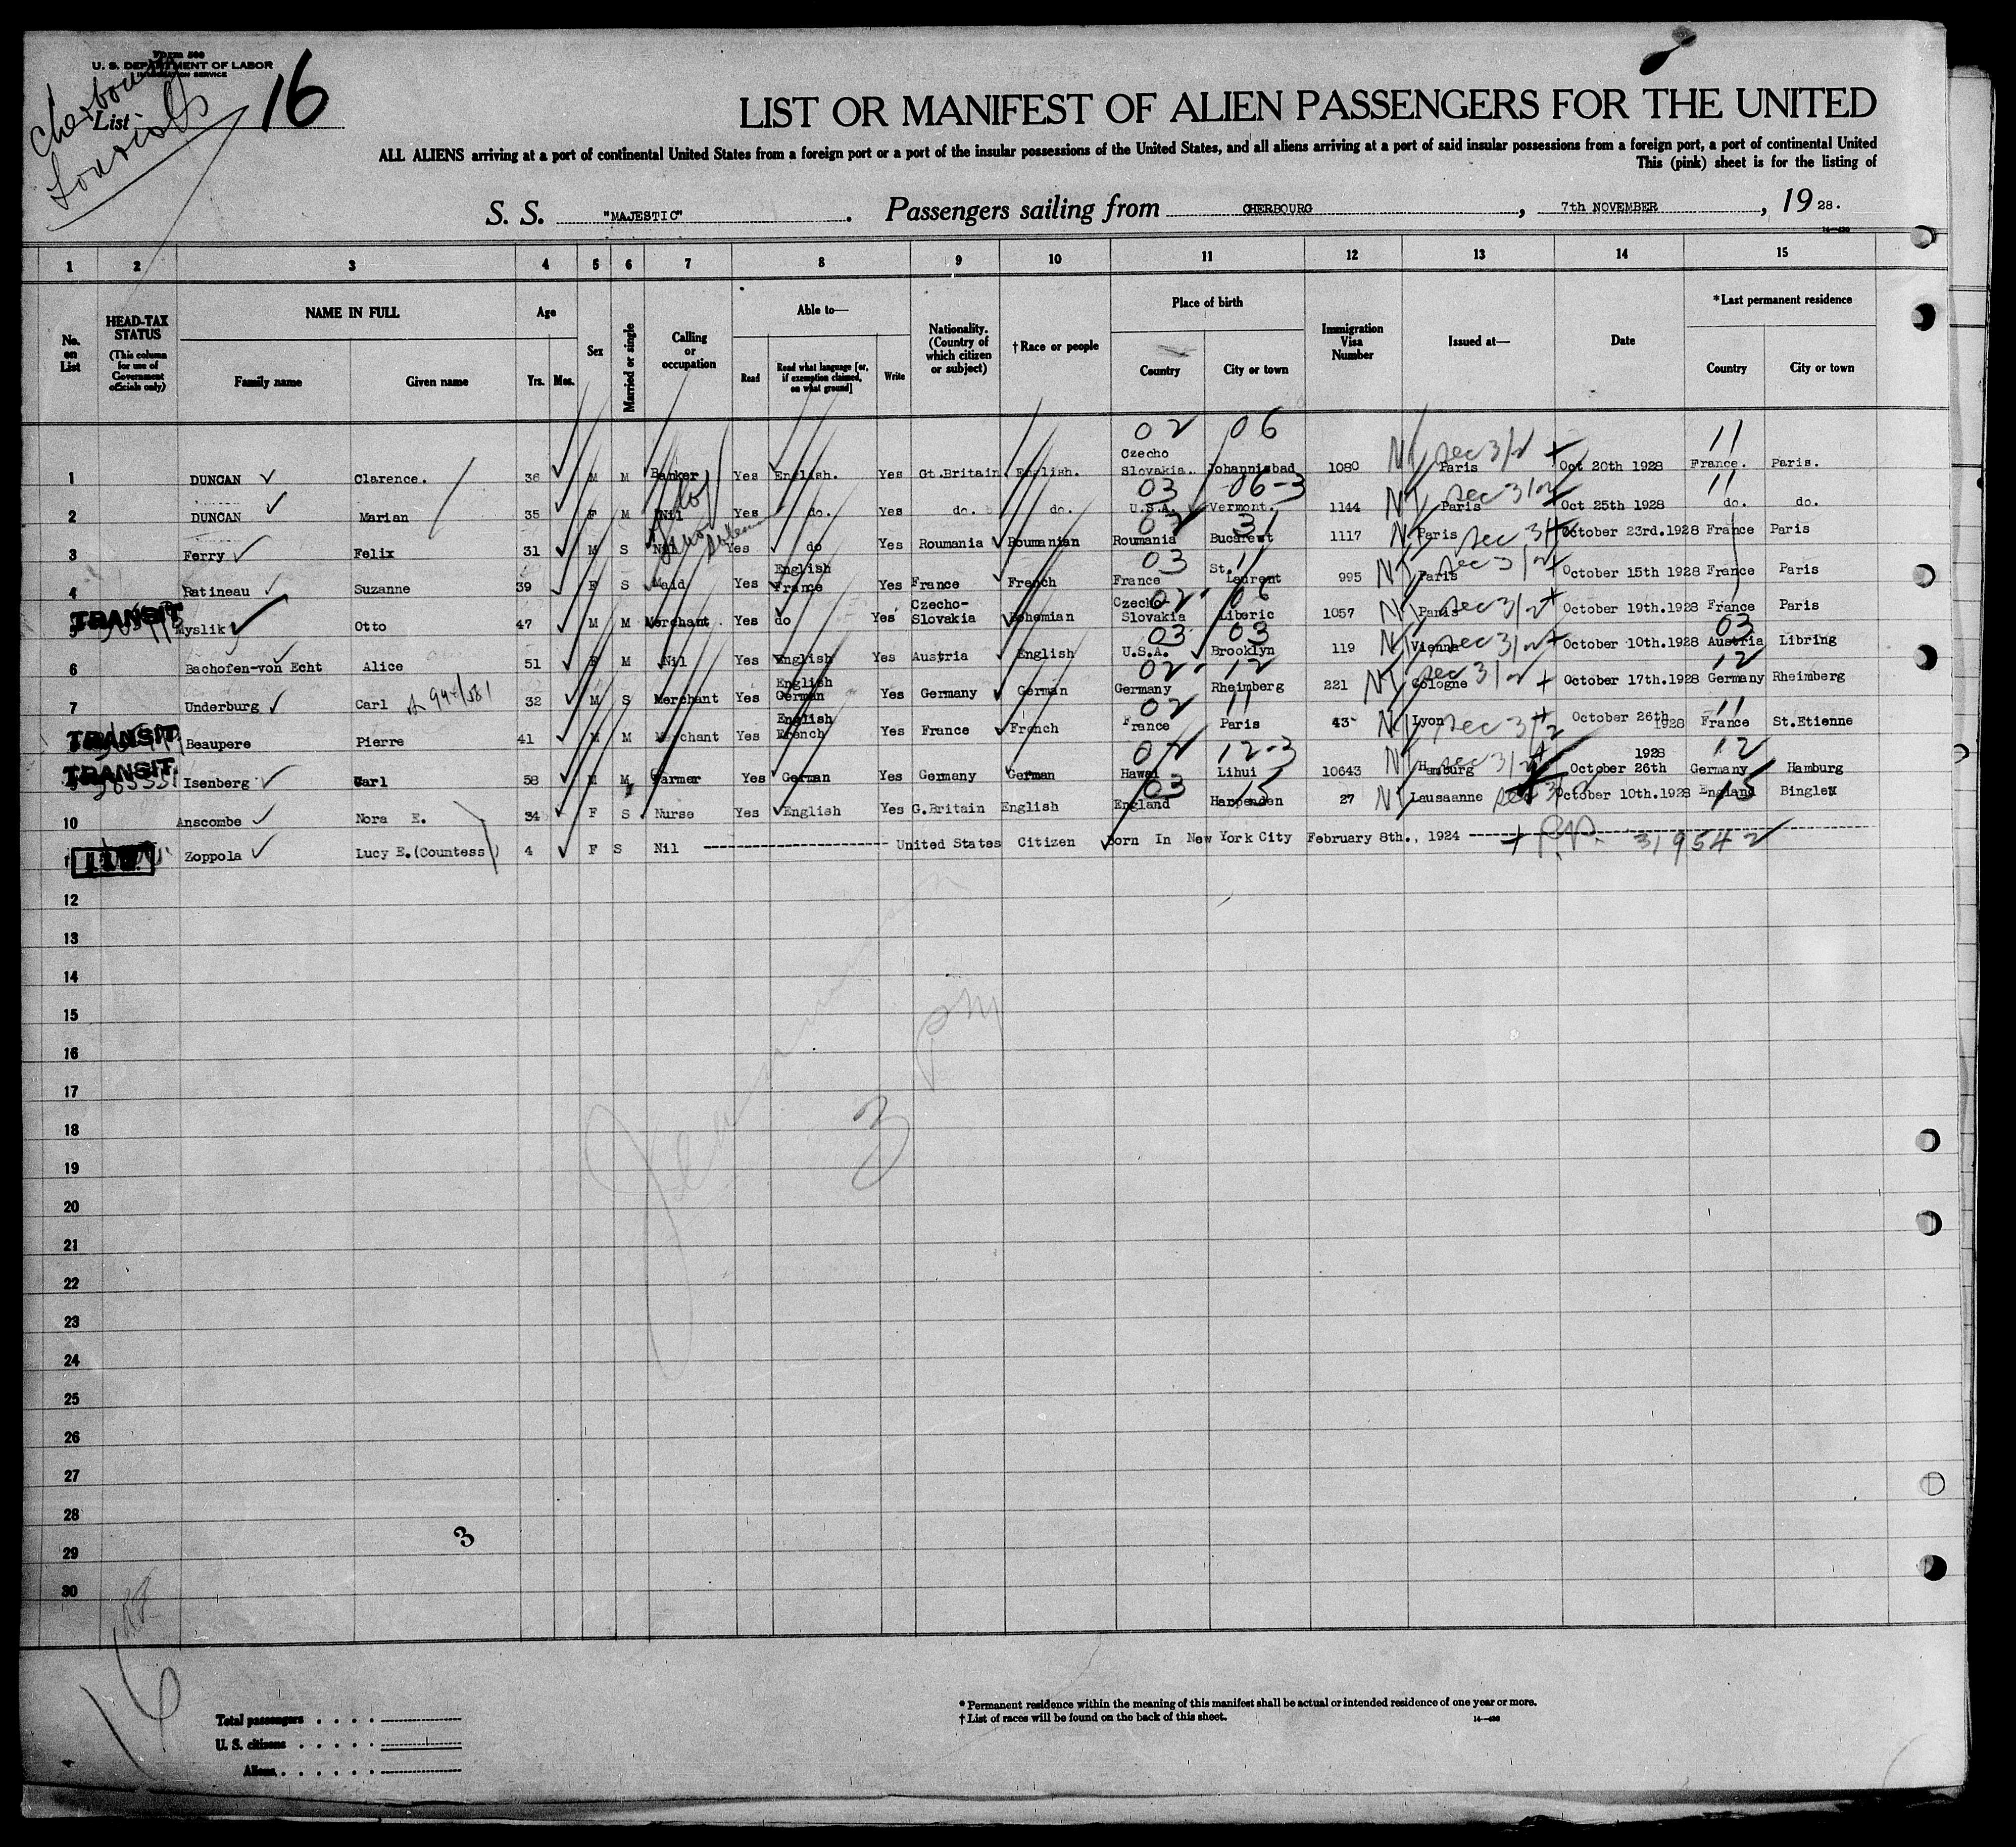 Form 500
U. S. DEPARTMENT OF LABOR
IMMIGRATION SERVICE
Cherbourg
Tourists
List 16
LIST OR MANIFEST OF ALIEN PASSENGERS FOR THE UNITED
ALL ALIENS arriving at a port of continental United States from a foreign port or a port of the insular possessions of the United States, and all aliens arriving at a port of said insular possessions from a foreign port, a port of continental United
This (pink) sheet is for the listing of
S. S. "MAJESTIC". Passengers sailing from CHERBOURG, 7th NOVEMBER, 1928.
1 2 3 4 5 6 7 8 9 10 11 12 13 14 15
No. on List
HEAD-TAX STATUS (This column for use of Government officials only)
NAME IN FULL
Family name Given name
Age
Yrs. Mos.
Sex
Married or single
Calling or occupation
Able to—
Read Read what language [or, if exemption claimed, on what ground] Write
Nationality. (Country of which citizen or subject)
† Race or people
Place of birth
Country City or town
Immigration Visa Number
Issued at—
Date
* Last permanent residence
Country City or town
02 06 11
1 DUNCAN Clarence. 36 M M Banker Yes English. Yes Gt.Britain English. Czecho Slovakia. Johannisbad 1080 Paris Oct 20th 1928 France. Paris.
03 06-3 11
2 DUNCAN Marian 35 F M Nil Yes do. Yes do. do. U.S.A. Vermont. 1144 Paris Oct 25th 1928 do. do.
02 31
3 Ferry Felix 31 M S Nil Yes do Yes Roumania Roumanian Roumania Bucarest 1117 Paris October 23rd.1928 France Paris
03 11
4 Ratineau Suzanne 39 F S Maid Yes English France Yes France French France St. Laurent 995 Paris October 15th 1928 France Paris
TRANSIT
02 06
5 Myslik Otto 47 M M Merchant Yes do Yes Czecho-Slovakia Bohemian Czecho Slovakia Liberic 1057 Paris October 19th.1928 France Paris
03 03 03
6 Bachofen-von Echt Alice 51 F M Nil Yes English Yes Austria English U.S.A. Brooklyn 119 Vienna October 10th.1928 Austria Libring
02 12 12
7 Underburg Carl 32 M S Merchant Yes English German Yes Germany German Germany Rheimberg 221 Cologne October 17th.1928 Germany Rheimberg
TRANSIT
02 11 11
Beaupere Pierre 41 M M Merchant Yes English French Yes France French France Paris 43 Lyon October 26th 1928 France St.Etienne
TRANSIT.
02 12-3 12
Isenberg Carl 58 M M Farmer Yes German Yes Germany German Hawai Lihui 10643 Hamburg 1928 October 26th Germany Hamburg
03 15 15
10 Anscombe Nora E. 34 F S Nurse Yes English Yes G.Britain English England Harpenden 27 Lausaanne October 10th.1928 England Bingley
11 Zoppola Lucy E.(Countess) 4 F S Nil United States Citizen Born In New York City February 8th., 1924 P.P. 319542
12
13
14
15
16
17
18
19
20
21
22
23
24
25
26
27
28
29
30
3 PM
3
16
* Permanent residence within the meaning of this manifest shall be actual or intended residence of one year or more.
† List of races will be found on the back of this sheet.
14—430
Total passengers
U. S. citizens
Aliens